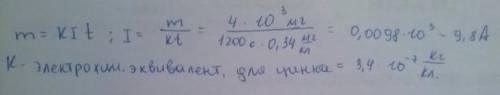 m = kIt ; I = m/kt = 4·10³ мг / 1200 с · 0,34 мг/кл = 0,0098·10³ - 9,8А
К - электрохим. эквивалент, для цинка = 3,4·10⁻⁷ кг/кл.